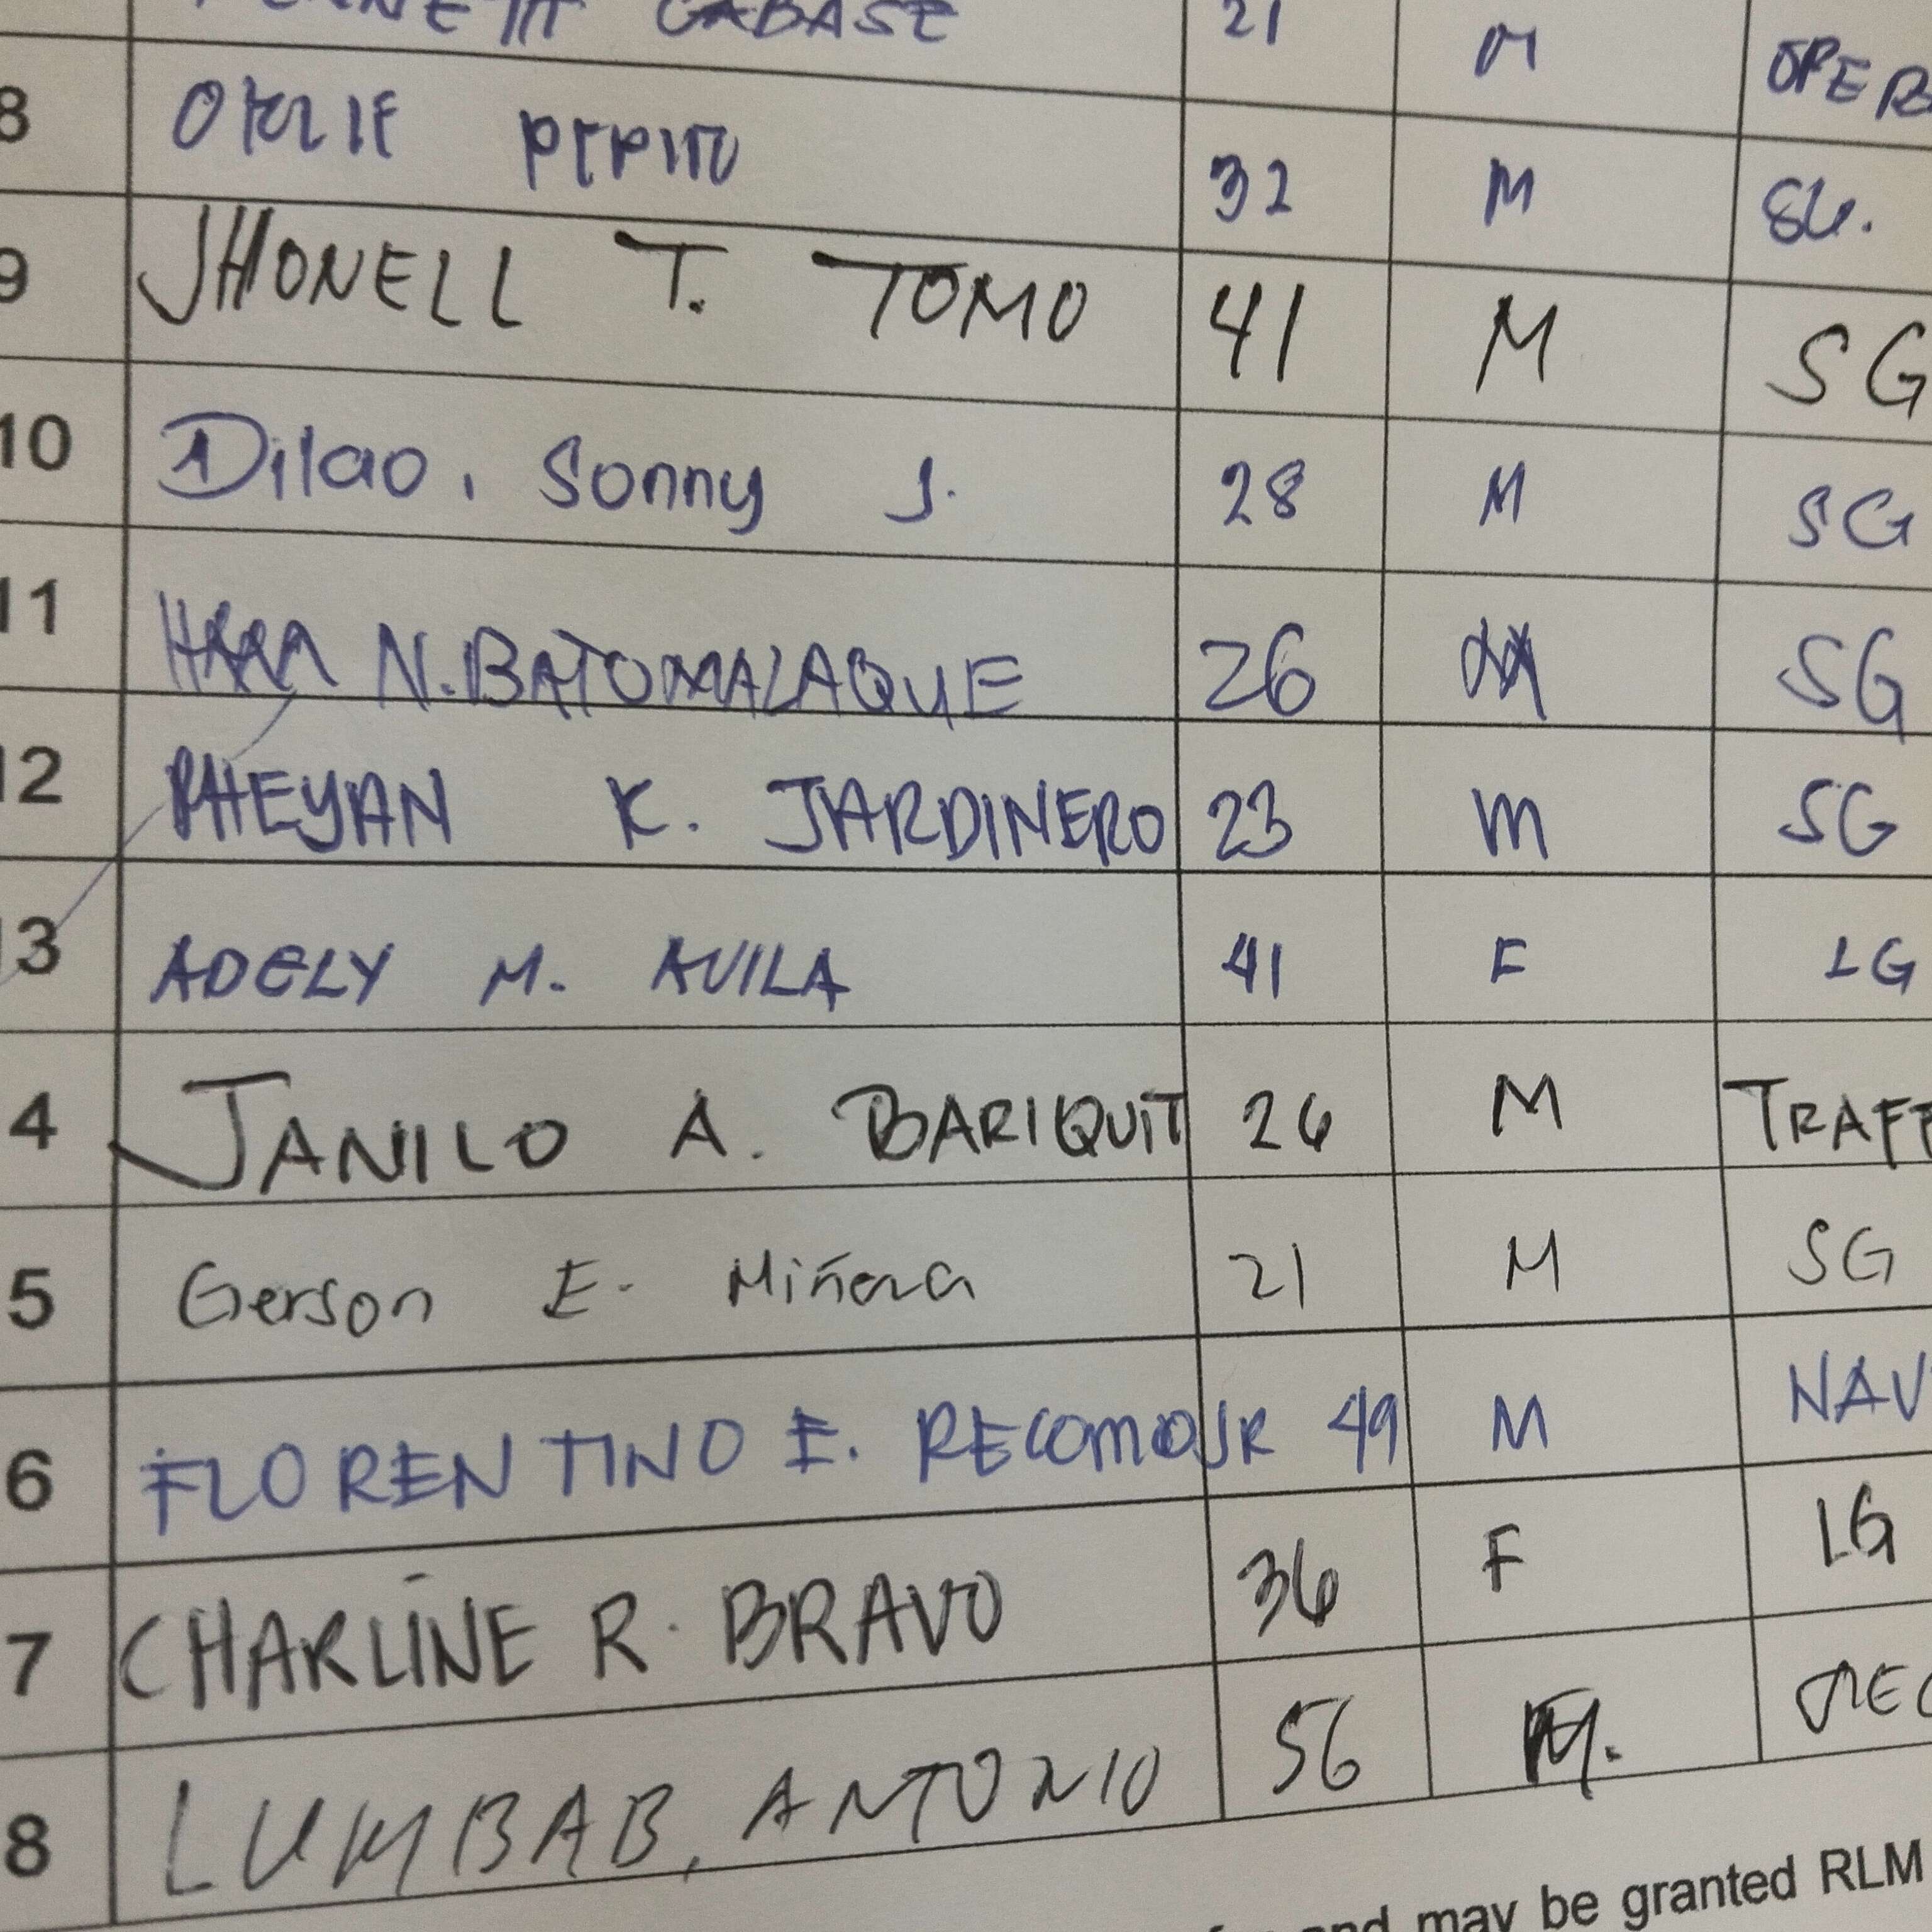 CABASE 21 M OPER
8 ORLIE PEPITO 32 M SG.
9 JHONELL T. TOMO 41 M SG
10 Dilao, Sonny J. 28 M SG
11 N. BATOMALAQUE 26 M SG
12 RHEYAN K. JARDINERO 23 M SG
13 ADELY M. AVILA 41 F LG
4 JANILO A. BARIQUIT 26 M TRAFF
5 Gerson E. Miñoza 21 M SG
6 FLORENTINO E. RECOMO JR 49 M NAV
7 CHARLINE R. BRAVO 36 F LG
8 LUMBAB, ANTONIO 56 M.
and may be granted RLM